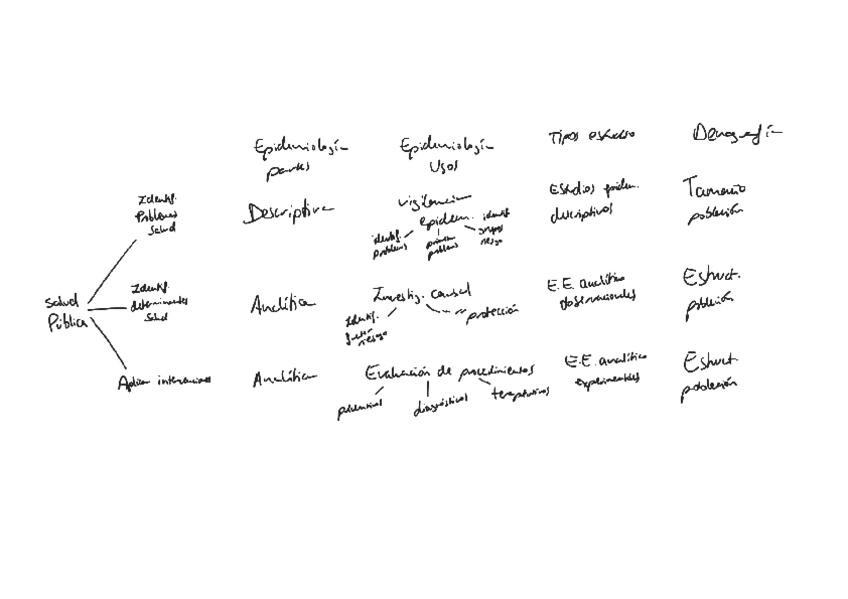 Epidemiología
partes
Epidemiología
Usos
Tipos estudio
Demografía
Identif.
Problemas
Salud
Descriptiva
vigilancia
epidem.
identif.
problemas
problems
identif
grupos
riesgo
Estudios epidem.
descriptivos
Tamaño
población
Salud
Pública
Identif.
determinantes
Salud
Analítica
Investig. causal
Identif.
factor
riesgo
protección
E.E. analítico
observacionales
Estruct.
población
Aplicar intervenciones
Analítica
Evaluación de procedimientos
preventivos
diagnósticos
terapéuticos
E.E. analítico
experimentales
Estruct
población